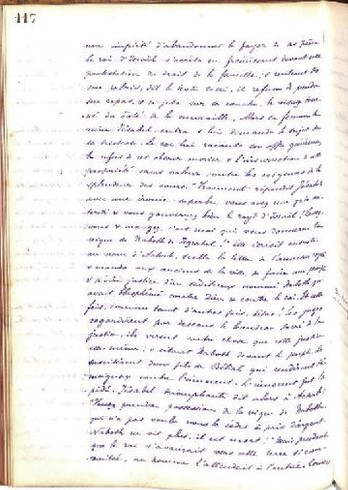 117
une impiété d'abandonner le foyer de ses pères
le roi d'Israël s'arrêta en frémissant devant cette
protestation du droit de la famille; et rentrant dans
son palais, dit le texte sacré, il refusa de prendre
son repas, et se jeta sur sa couche, le visage tour-
né du côté de la muraille. Alors sa femme la
reine Jézabel, entra et lui demanda le sujet de
sa tristesse. Le roi lui raconta son offre généreuse,
le refus de cet obscur
propriété sans valeur contre les exigences de la
splendeur des cours. "Vraiment répondit Jézabel
avec une ironie superbe vous avez une grande au-
torité et vous gouvernez bien le roy. d'Israël! Levez
vous et mangez, c'est moi qui vous donnerai la
vigne de Naboth de Jezrahel." Elle écrivit ensuite
au nom d'Achab, scella la lettre de l'anneau royal
et manda aux anciens de la ville de faire au peuple
justice, d'un séditieux nommé Naboth qui
avait blasphémé contre Dieu et contre le roi. Et cette
fois, comme tant d'autres fois, hélas! les juges
regardèrent par dessous le bandeau sacré de la
justice, ils virent autre chose que cette justice
elle-même; et citèrent Naboth devant le peuple, ils
deux fils de Bélial qui rendirent té-
moignage contre l'innocent. L'innocent fut la-
pidé. Jézabel triomphante dit alors à Achab:
prenez possession de la vigne de Naboth
qui n'a pas voulu vous la céder à prix d'argent.
Naboth ne vit plus, il est mort." Mais pendant
que le roi s'avançait vers cette terre si con-
voitée, un homme l'attendait à l'entrée.